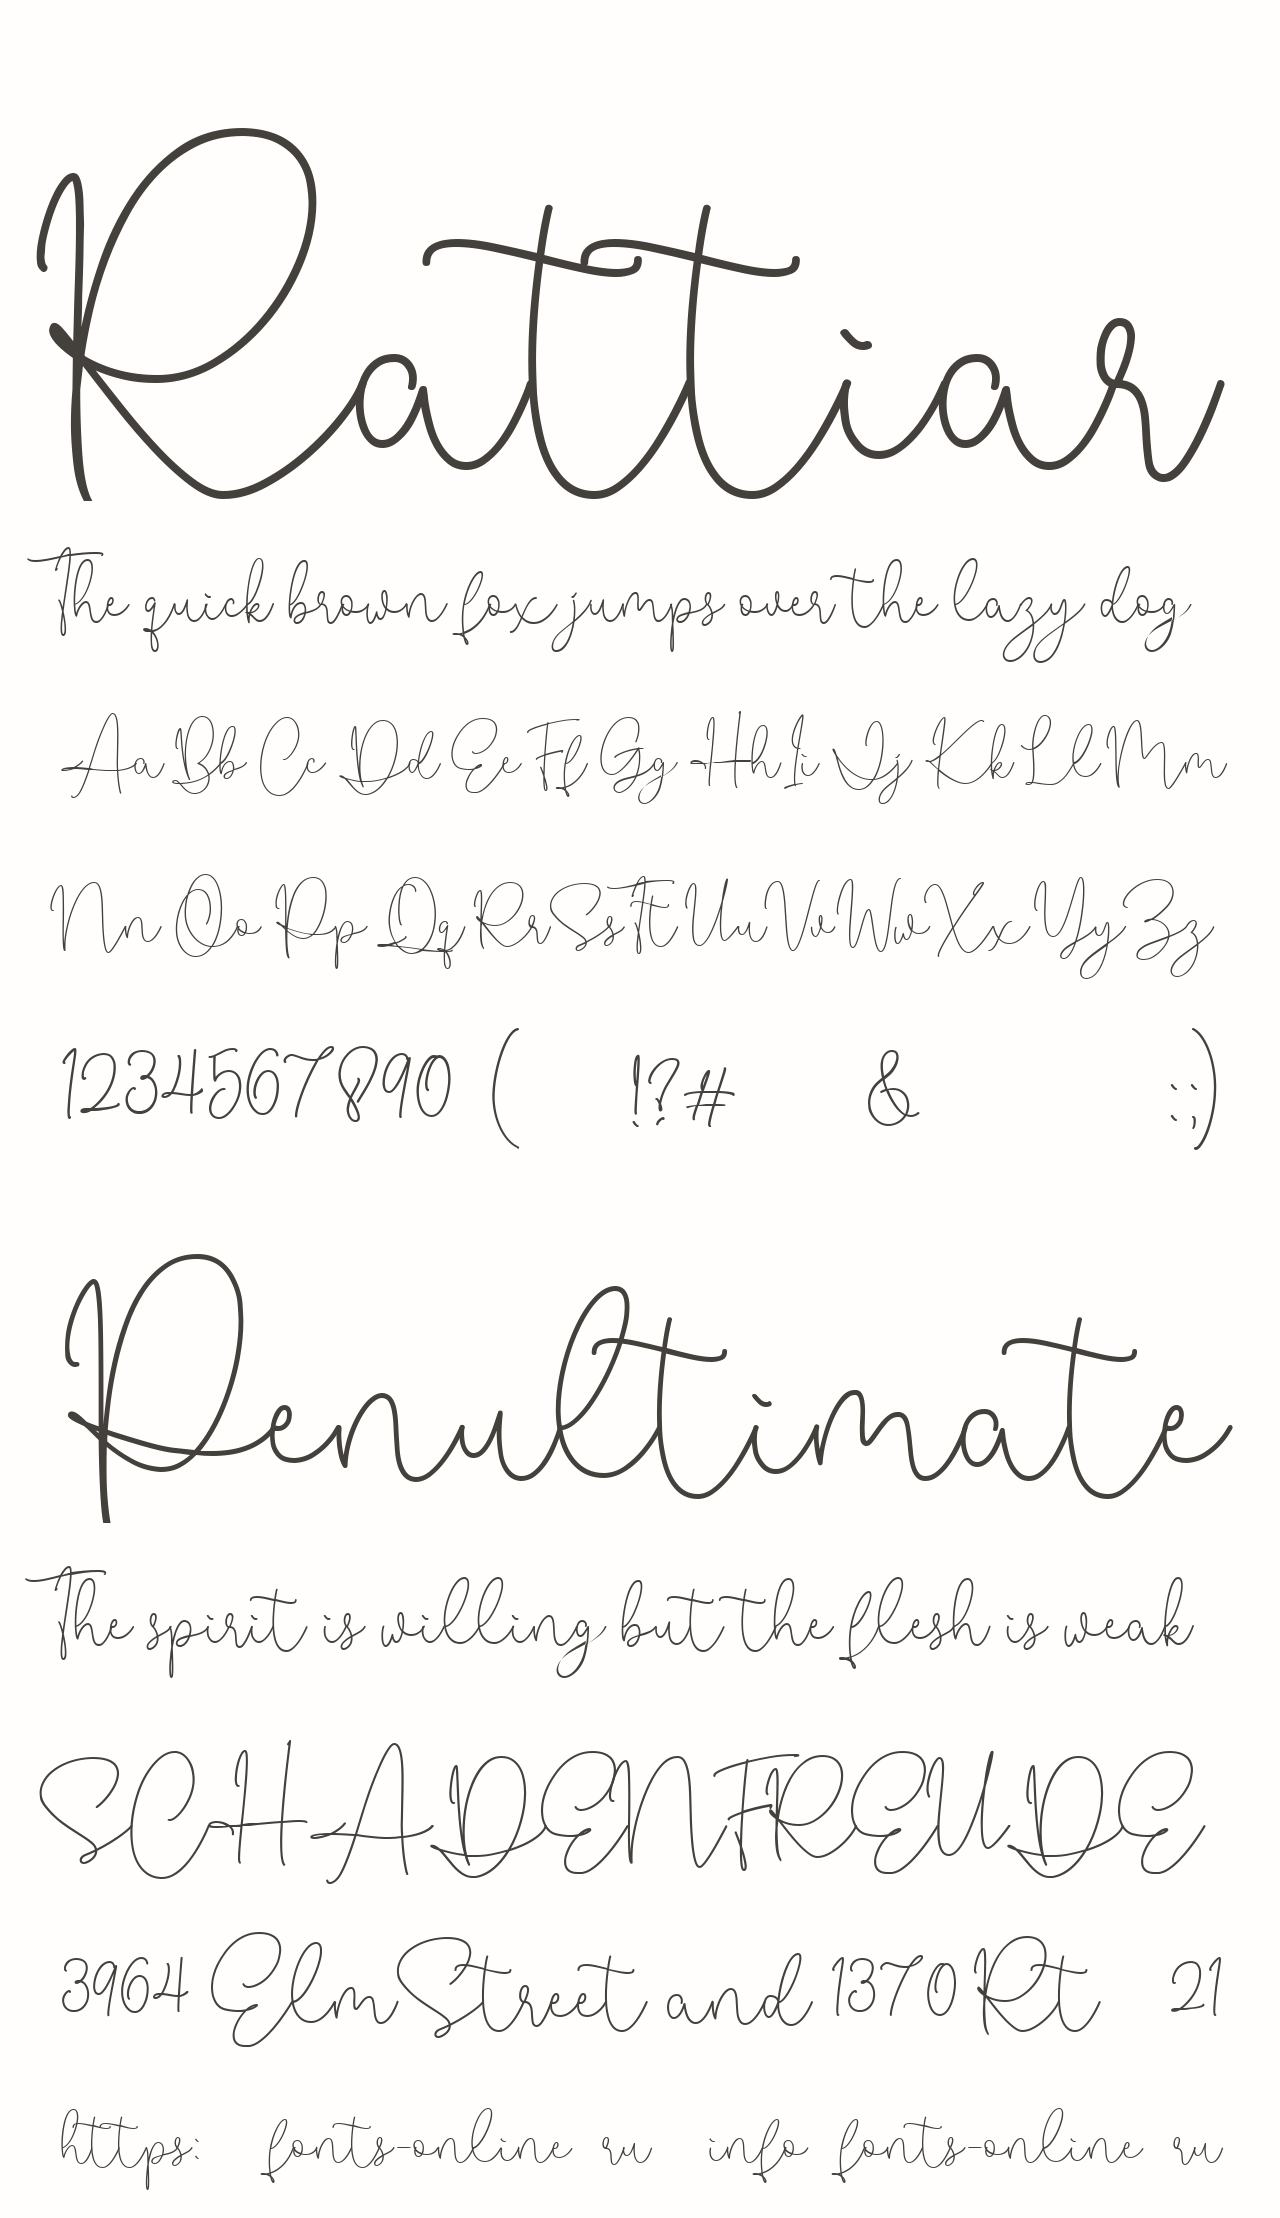 Rattiar
The quick brown fox jumps over the lazy dog
Aa Bb Cc Dd Ee Ff Gg Hh Ii Jj Kk Ll Mm
Nn Oo Pp Qq Rr Ss Tt Uu Vv Ww Xx Yy Zz
1234567890 ( !?# & :;)
Penultimate
The spirit is willing but the flesh is weak
SCHADENFREUDE
3964 Elm Street and 1370 Rt 21
https: fonts-online ru info fonts-online ru